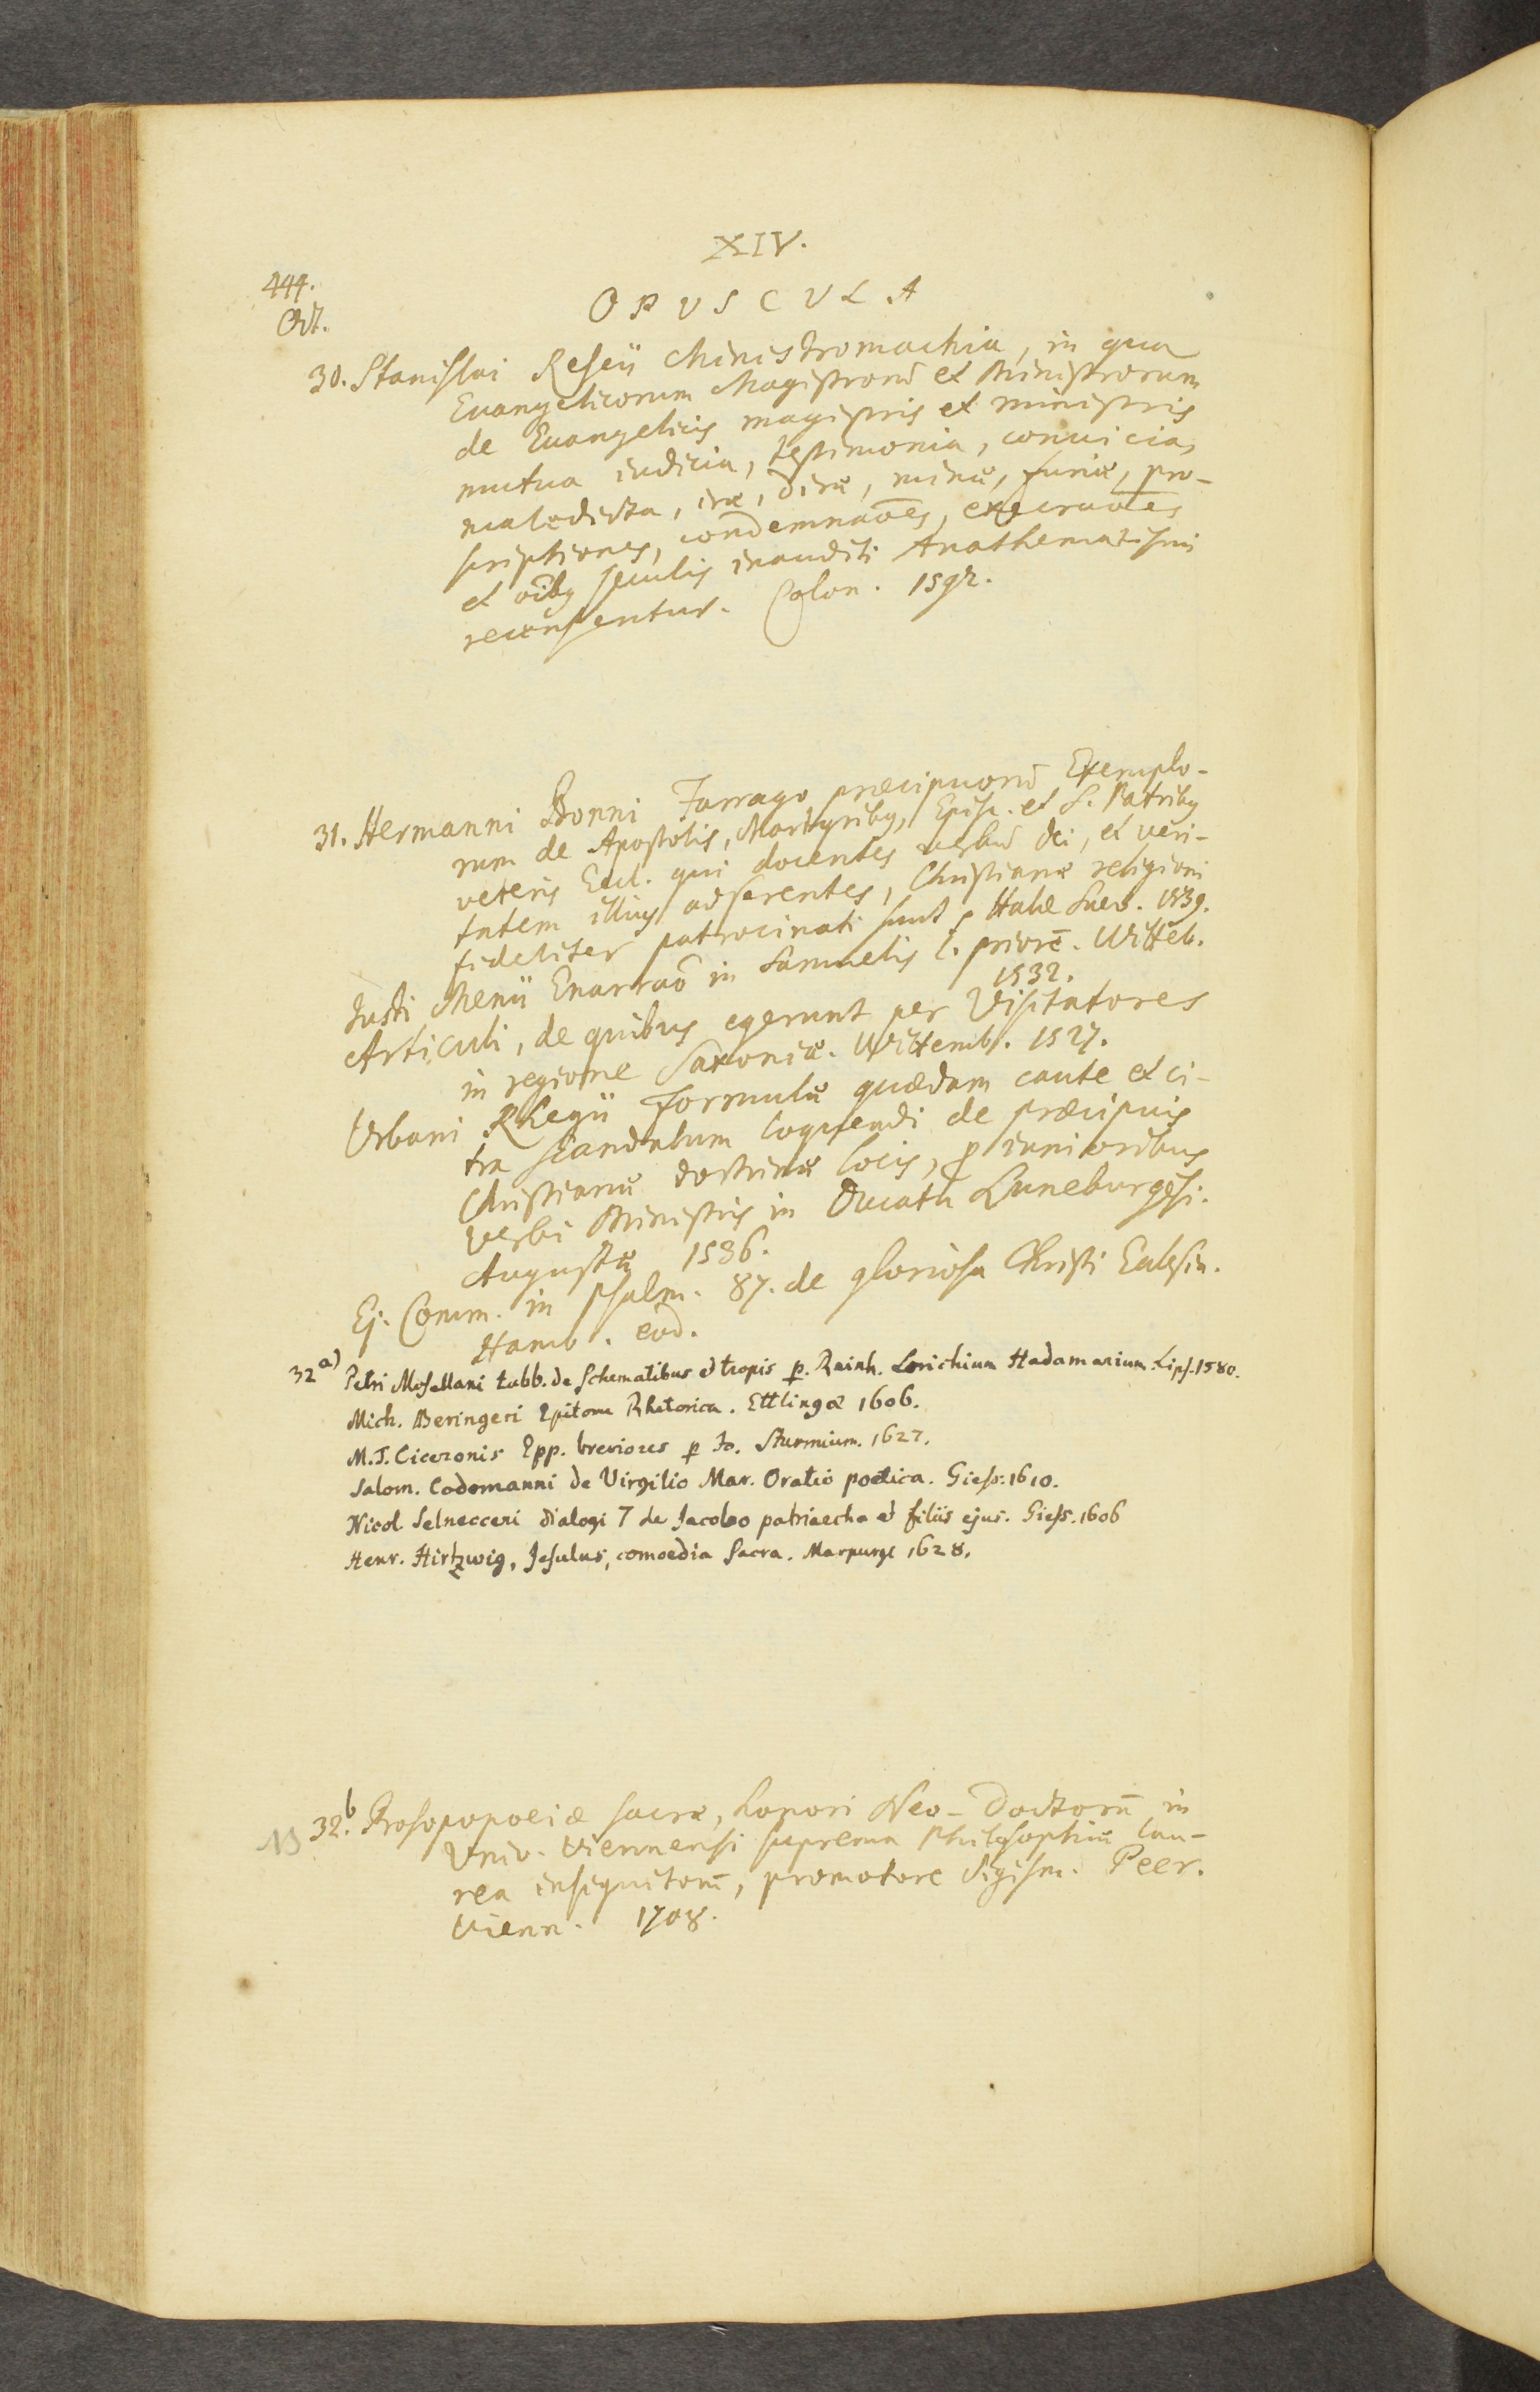 XIV.
444.
Oct.
OPVSCVLA
30. Stanislai Reseii Ministromachia, in qua
Euangelicorum Magistrorū et Ministrorum
de Euangelicis magistris et ministris
mutua iudicia, testimonia, conuicia,
maledicta, iræ, diræ, minæ, furiæ, pro-
scriptiones, condemnaōes, execraōes
et oībꝫ seculis inauditi Anathematismi
recensentur. Colon. 1592.
31. Hermanni Bonni Farrago præcipuorū Exemplo-
rum de Apostolis, Martyribꝫ, Episc. et S. Patribꝫ
veteris Eccl. qui docentes verbū Dei, et veri-
tatem illius adserentes, Christianæ religioni
fideliter patrocinati sunt. Halæ Suev. 1539.
Justi Menii Enarraō in Samuelis l. priorē. Witteb.
1532.
Articuli, de quibus egerunt per Visitatores
in regione Saxoniæ. Wittemb. 1527.
Urbani Rhegii formulæ quædam caute et ci-
tra scandalum loquendi de præcipuis
Christianæ doctrinæ locis, p iunioribus
verbi Ministris in Ducatu Luneburgēsi.
Augustæ 1536.
Ej. Comm. in psalm. 87. de gloriosa Christi Ecclesia.
Hamb. eod.
32 a) Petri Mosellani tabb. de Schematibus et tropis p. Reinh. Lorichium Hadamarium. Lips. 1580.
Mich. Beringeri Epitome Rhetorica. Ettlingæ 1606.
M. T. Ciceronis Epp. breviores p Jo. Sturmium. 1627.
Salom. Codomanni de Virgilio Mar. Oratio poetica. Giess. 1610.
Nicol. Selnecceri dialogi 7 de Jacobo patriarcha et filiis ejus. Giess. 1606
Henr. Hirtzwig, Jesulus, comoedia sacra. Marpurgi 1628.
32. b Prosopopoeiæ sacræ, honori Neo-Doctorū in
Univ. Viennensi suprema Philosophiæ lau-
rea insignitorū, promotore Sigism. Peer.
Vienn. 1708.